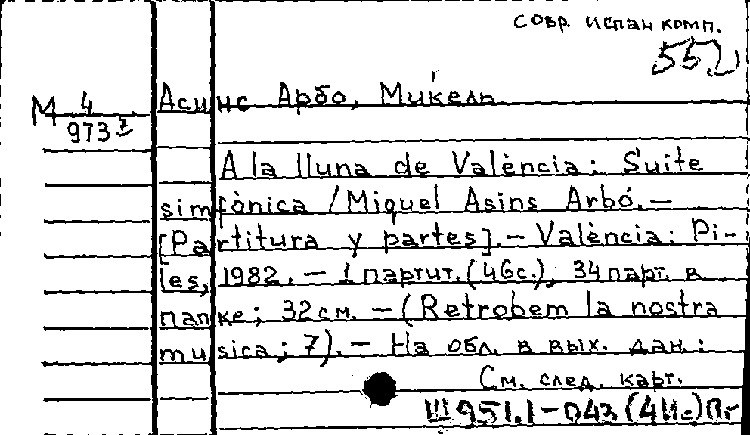 Совр. испан комп.
552
М 4/973⁷ Асинс Арбо, Микель
A la lluna de València: Suite
simfònica / Miquel Asins Arbó. —
[Partitura y partes]. — València: Pi-
les, 1982. — 1 партит. (46с.), 34 парт. в
папке; 32 см. — (Retrobem la nostra
musica; 7). — На обл. в вых. дан.:
См. след. карт.
Ш951.1-043(4Ис)Пг